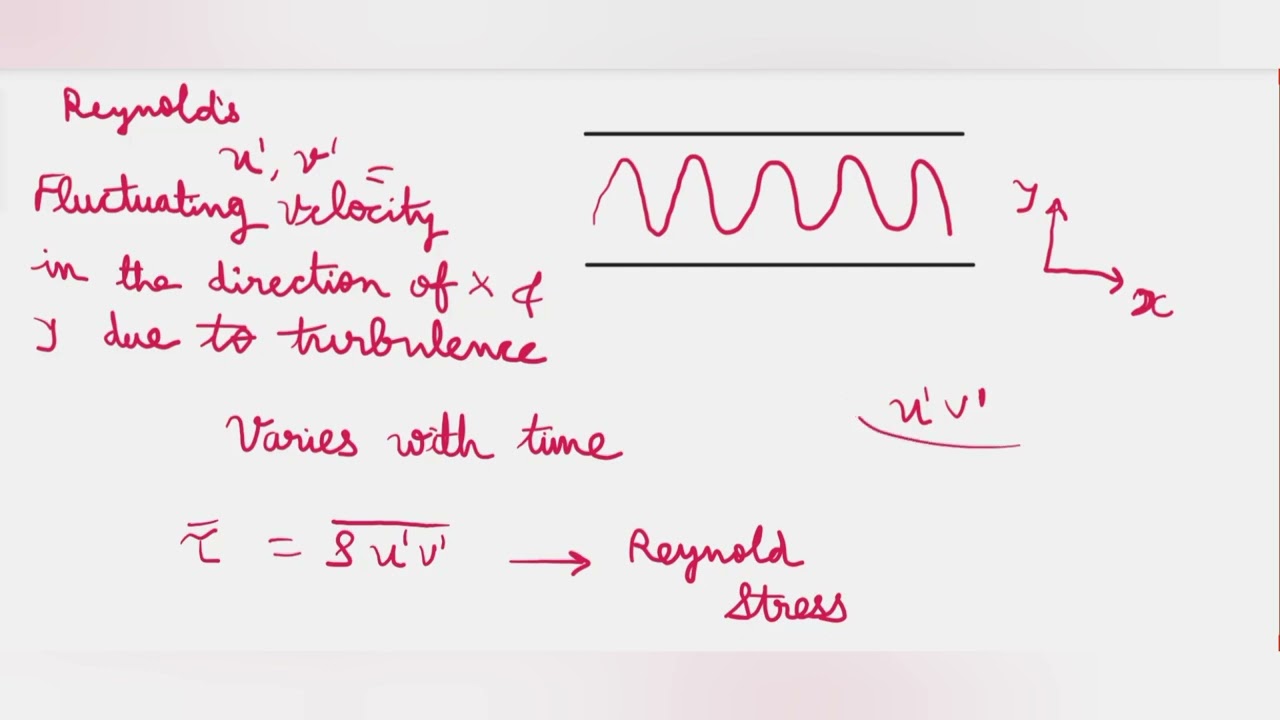 Reynold's
u', v' =
Fluctuating velocity
in the direction of x &
y due to turbulence
Varies with time
τ̅ = \overline{ρ u'v'} → Reynold
Stress
y
x
u'v'